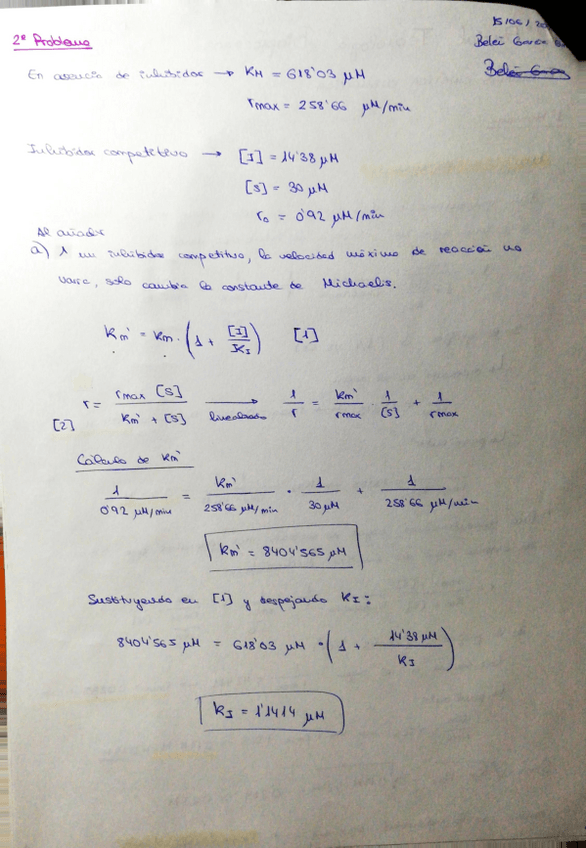 15/06/20
2º Problema
Belén García
Belén García
En ausencia de inhibidor → KM = 618'03 μM
rmax = 258'66 μM/min
Inhibidor competitivo → [I] = 14'38 μM
[S] = 30 μM
r0 = 0'92 μM/min
Al añadir
a) 1 un inhibidor competitivo, la velocidad máxima de reacción no
varía, solo cambia la constante de Michaelis.
Km' = Km · (1 + [I]/KI) [1]
r = rmax [S] / Km' + [S] → linealizado 1/r = Km'/rmax · 1/[S] + 1/rmax
[2]
Cálculo de Km'
1/0'92 μM/min = Km'/258'66 μM/min · 1/30 μM + 1/258'66 μM/min
Km' = 8404'565 μM
Sustituyendo en [1] y despejando KI:
8404'565 μM = 618'03 μM · (1 + 14'38 μM/KI)
KI = 1'1414 μM